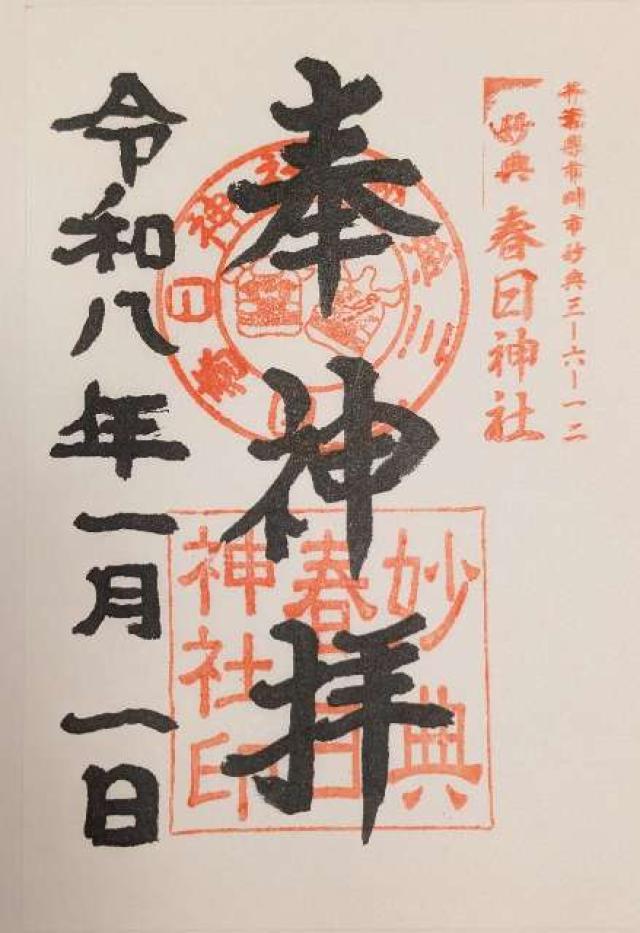 千葉県市川市妙典三ー六ー一二
妙典
春日神社
奉神拝
妙典
春日
神社印
令和八年一月一日